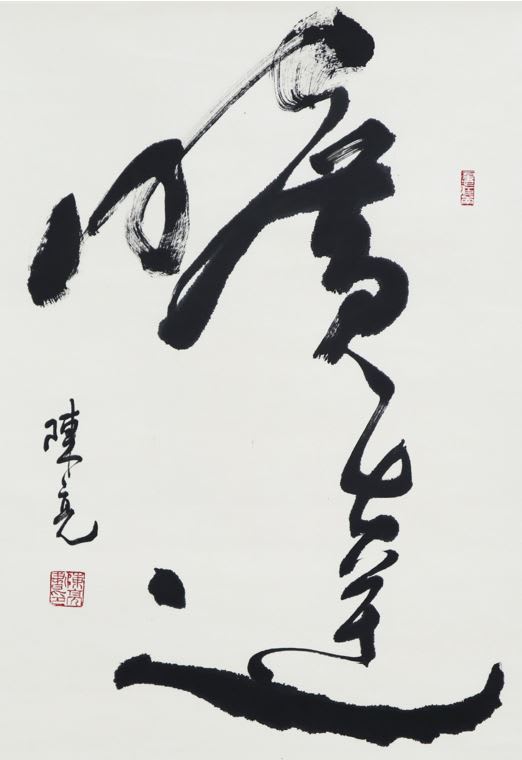 曠達
陳亮